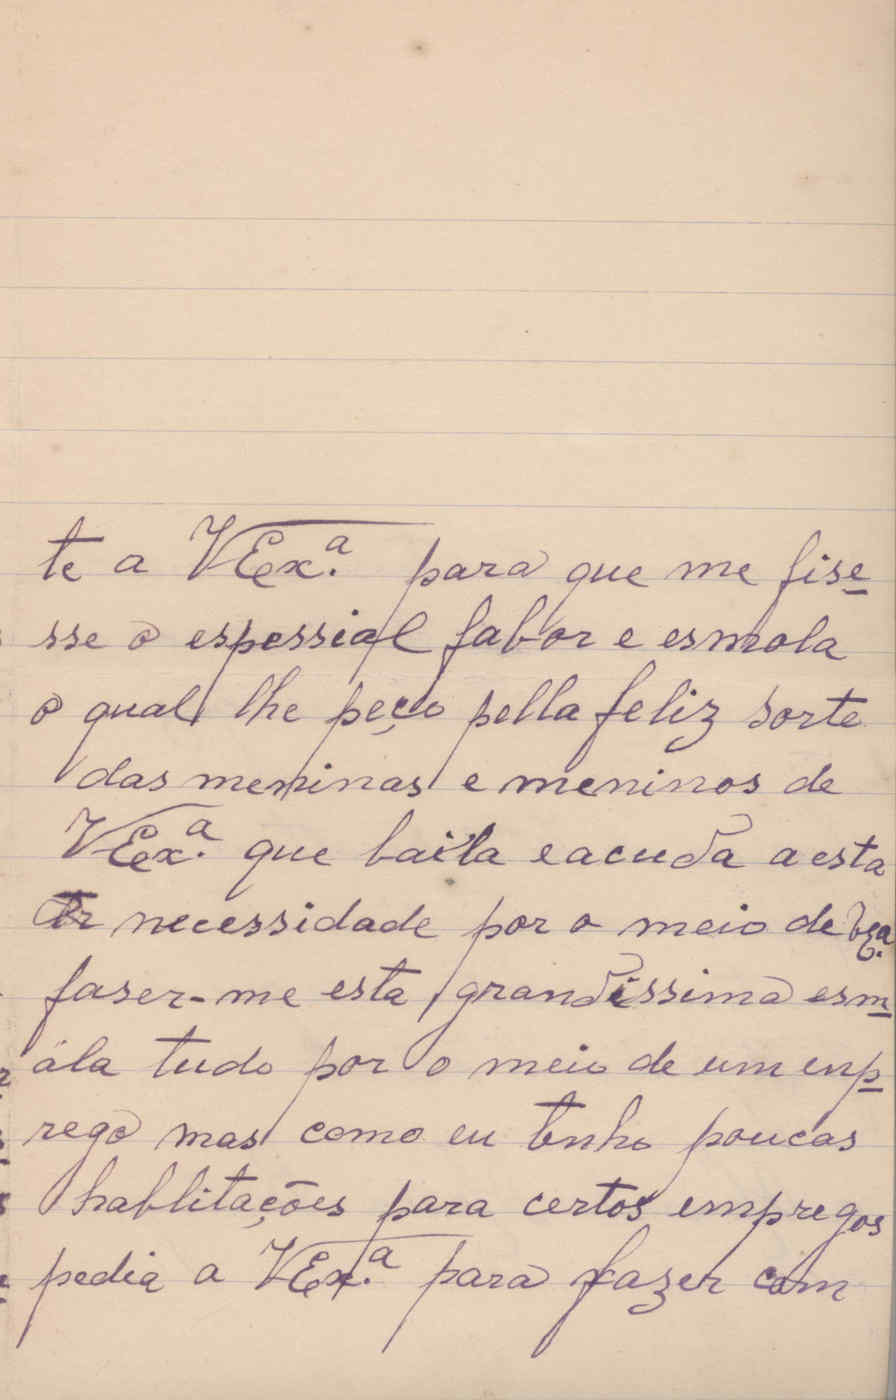 te a VExª. para que me fise
sse o espessial fabor e esmola
o qual lhe peço pella feliz sorte
das meninas e meninos de
VExª. que baila e acuda a esta
necessidade por o meio de VEª.
faser-me esta grandissima esm
óla tudo por o meio de um enp
rego mas como eu tenho poucas
hablitações para certos empregos
pedia a VExª. para fazer com